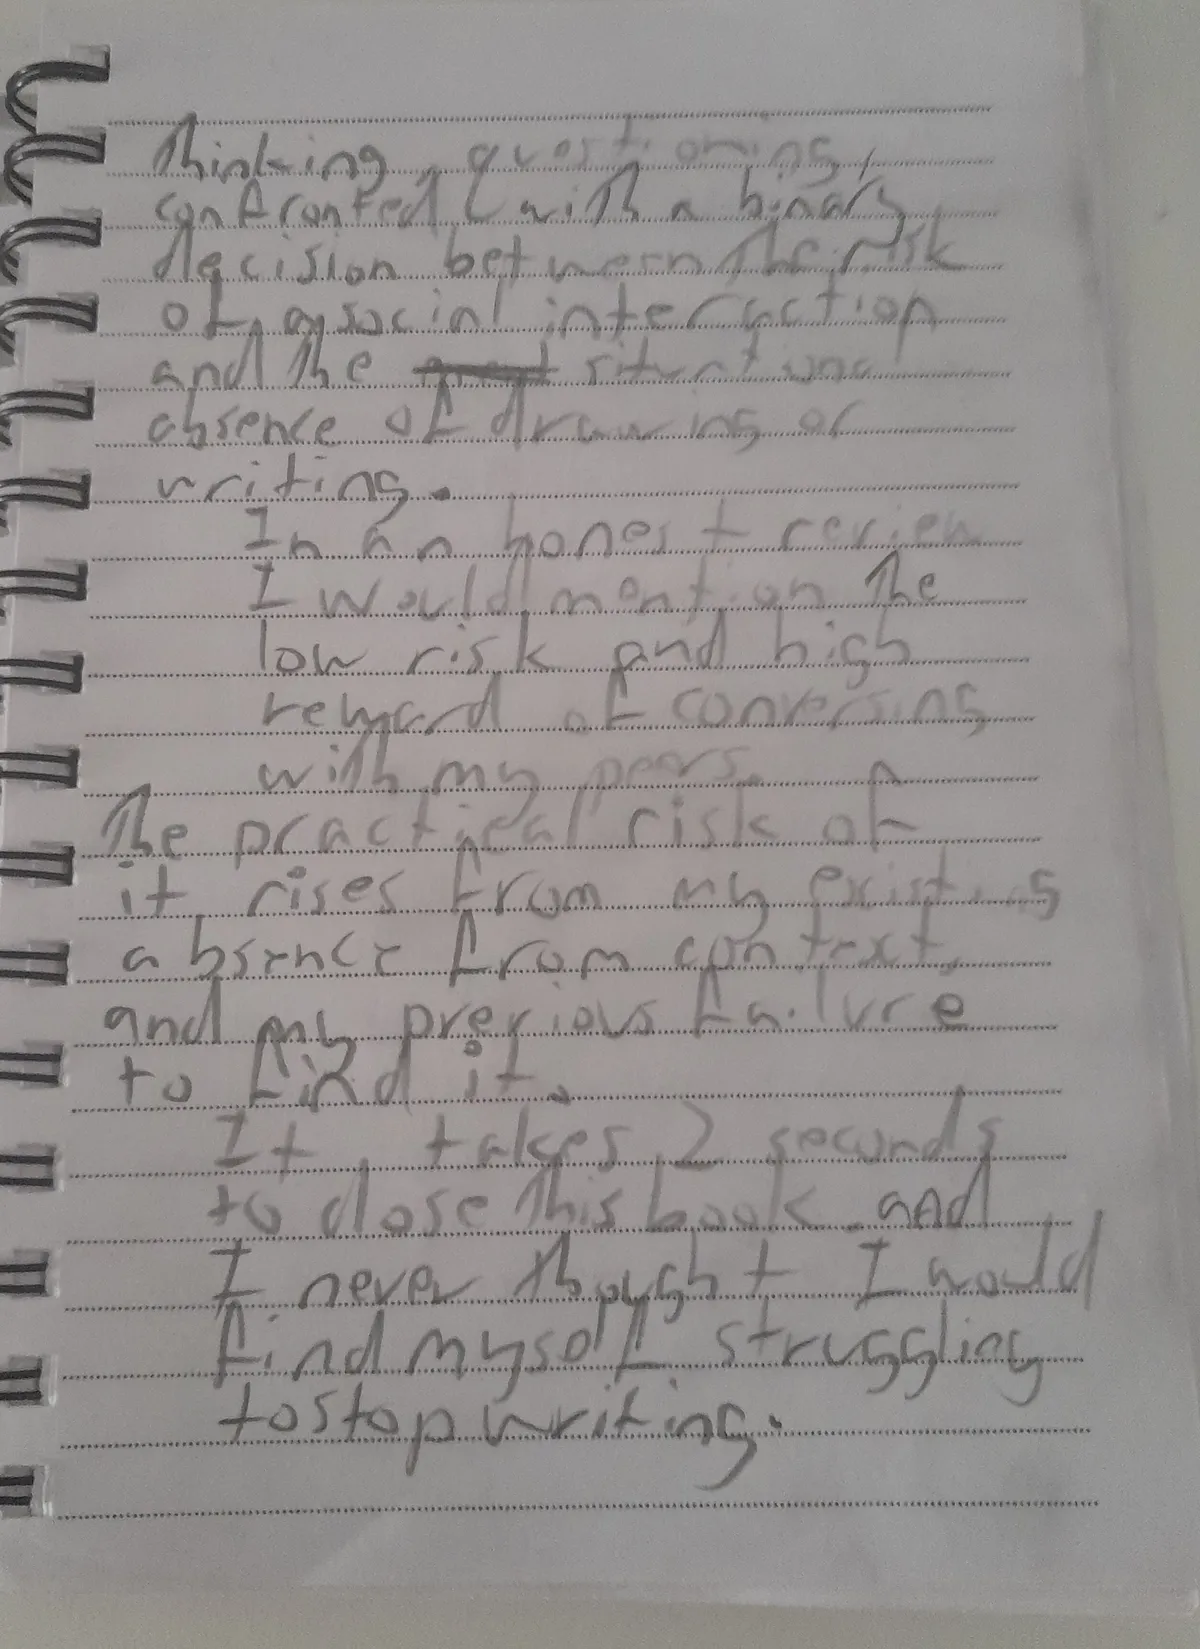 Thinking, questioning,
confronted with a binary
decision between the risk
of a social interaction
and the
absence of drawing or
writing.
In an honest review
I would mention the
low risk and high
reward of conversing
with my peers.
The practical risk of
it rises from my existing
absence from context,
and my previous failure
to find it.
It takes 2 seconds
to close this book and
I never thought I would
find myself struggling
to stop writing.